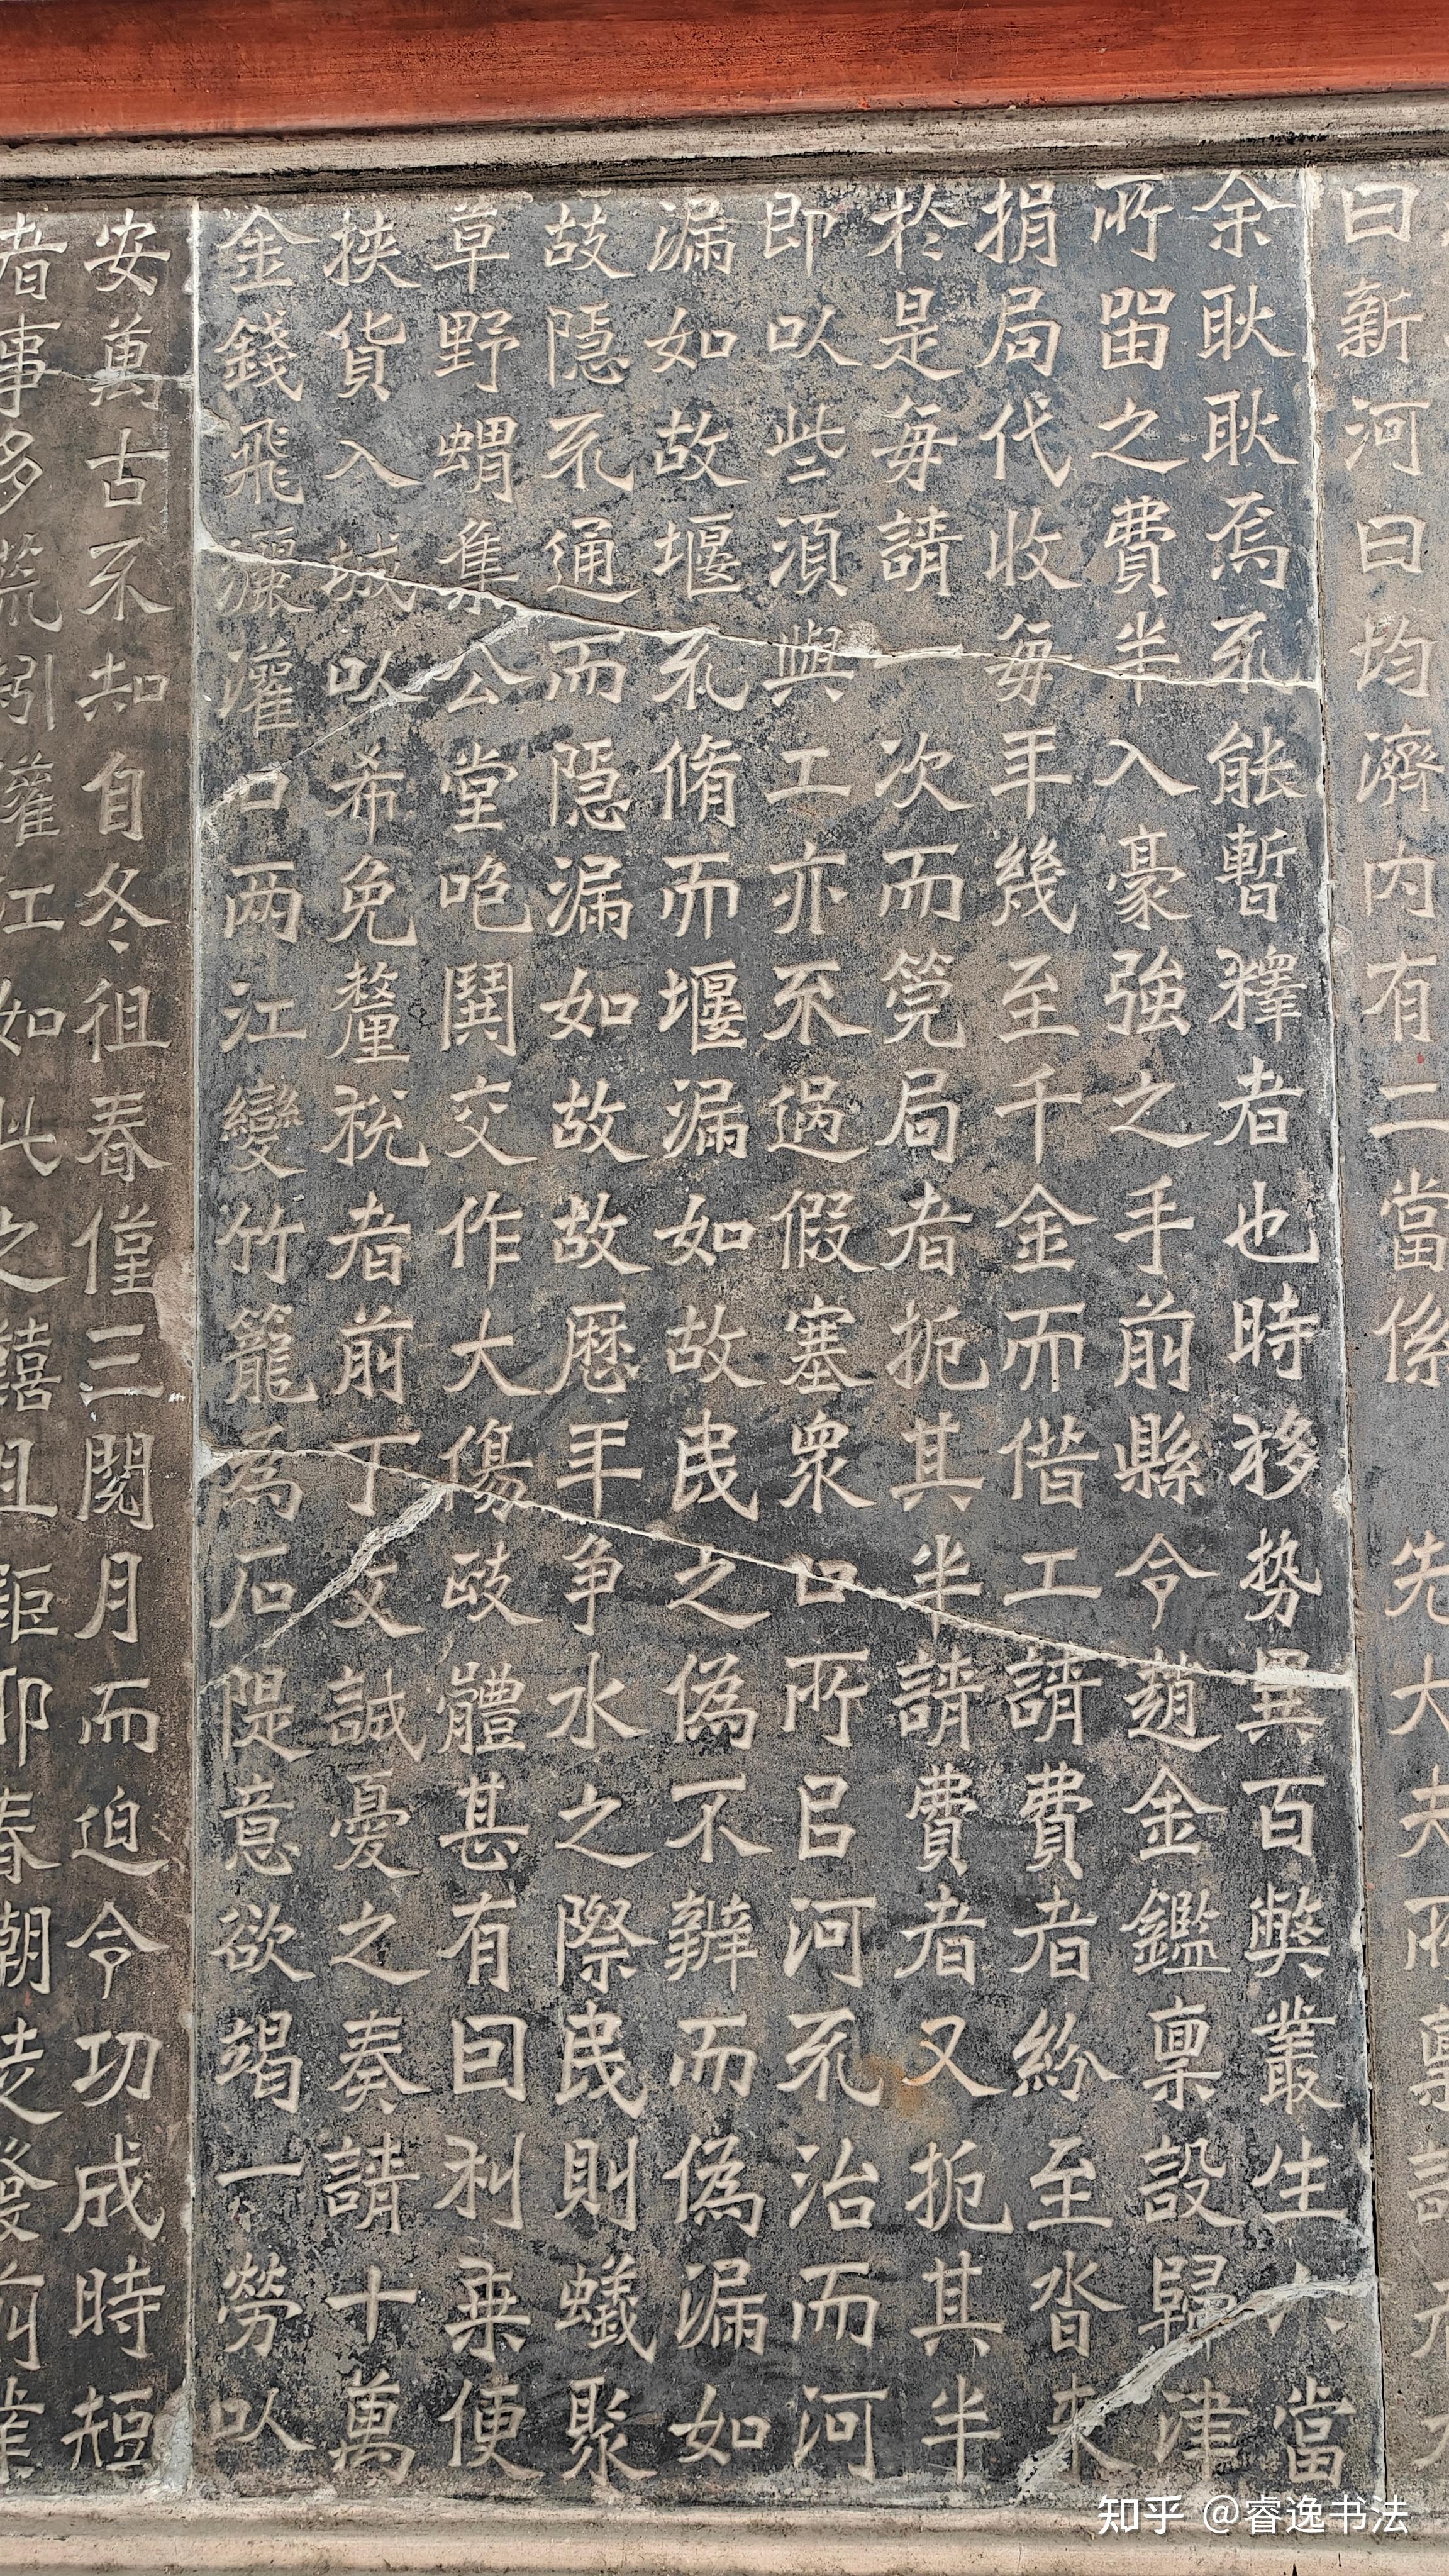 曰新河曰均濟内有二當係 先大夫所稟請
余耿耿焉不能暫釋者也時移势異百獘叢生人當
所畱之費半入豪強之手前縣令趙金鑑稟設歸津
捐局代收每年幾至千金而偕工請費者紛至沓来
於是每請一次而筦局者扼其半請費者又扼其半
即以些湏與工亦不過假塞衆口所㠯河不治而河
漏如故堰不脩而堰漏如故民之偽不辧而偽漏如
故隱不通而隱漏如故故歴年争水之際民則蟻聚
草野蝟集公堂咆鬨交作大傷政體甚有囙利乗便
挾貨入城以希免釐税者前丁文誠憂之奏請十萬
金錢飛灑灌口两江變竹籠為石隄意欲竭一勞以
安萬古不知自冬徂春僅三閱月而迫令功成時短
者事多荒引灌江如此之且春朝
知乎 @睿逸书法